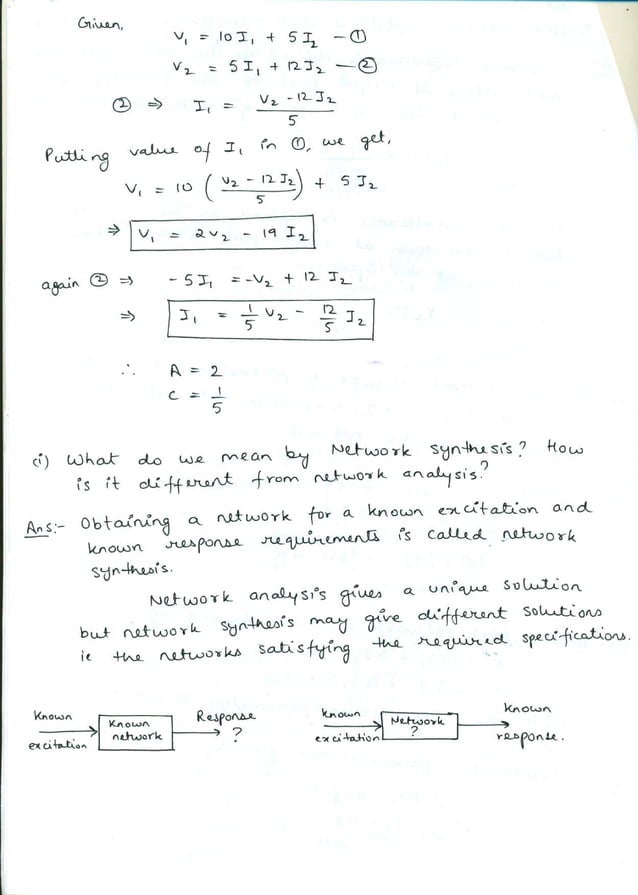 Given,
V₁ = 10 I₁ + 5 I₂ — ①
V₂ = 5 I₁ + 12 I₂ — ②
② ⇒ I₁ = (V₂ - 12 I₂) / 5
Putting value of I₁ in ①, we get,
V₁ = 10 ((V₂ - 12 I₂) / 5) + 5 I₂
⇒ V₁ = 2V₂ - 19 I₂
again ② ⇒ - 5 I₁ = -V₂ + 12 I₂
⇒ I₁ = 1/5 V₂ - 12/5 I₂
∴ A = 2
C = 1/5
(i) What do we mean by Network synthesis? How
is it different from network analysis?
Ans:- Obtaining a network for a known excitation and
known response requirements is called network
synthesis.
Network analysis gives a unique solution
but network synthesis may give different solutions
ie the networks satisfying the required specifications.
Known excitation → Known network → Response ?
Known excitation → Network ? → Known response.